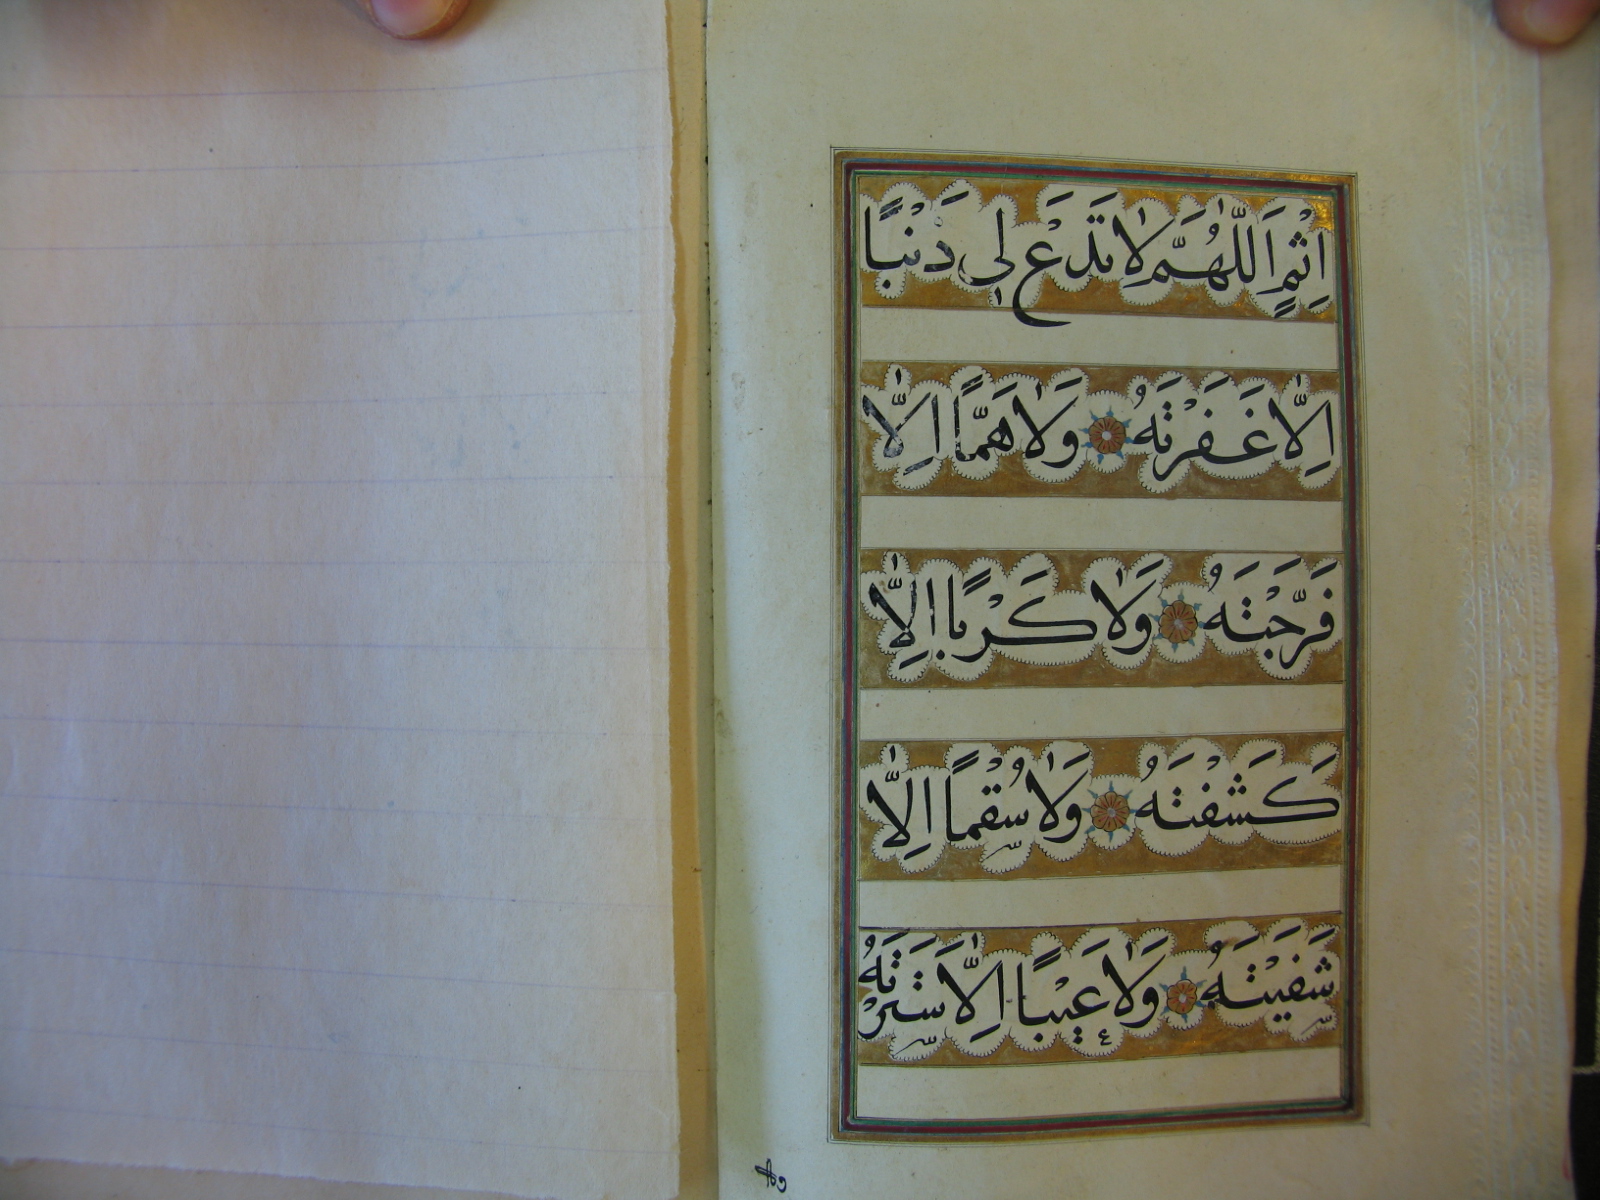 اِثْمٍ اَللّٰهُمَّ لَا تَدَعْ لِي ذَنْبًا
اِلَّا غَفَرْتَهُ وَلَا هَمًّا اِلَّا
فَرَّجْتَهُ وَلَا كَرْبًا اِلَّا
كَشَفْتَهُ وَلَا سُقْمًا اِلَّا
شَفَيْتَهُ وَلَا عَيْبًا اِلَّا سَتَرْتَهُ